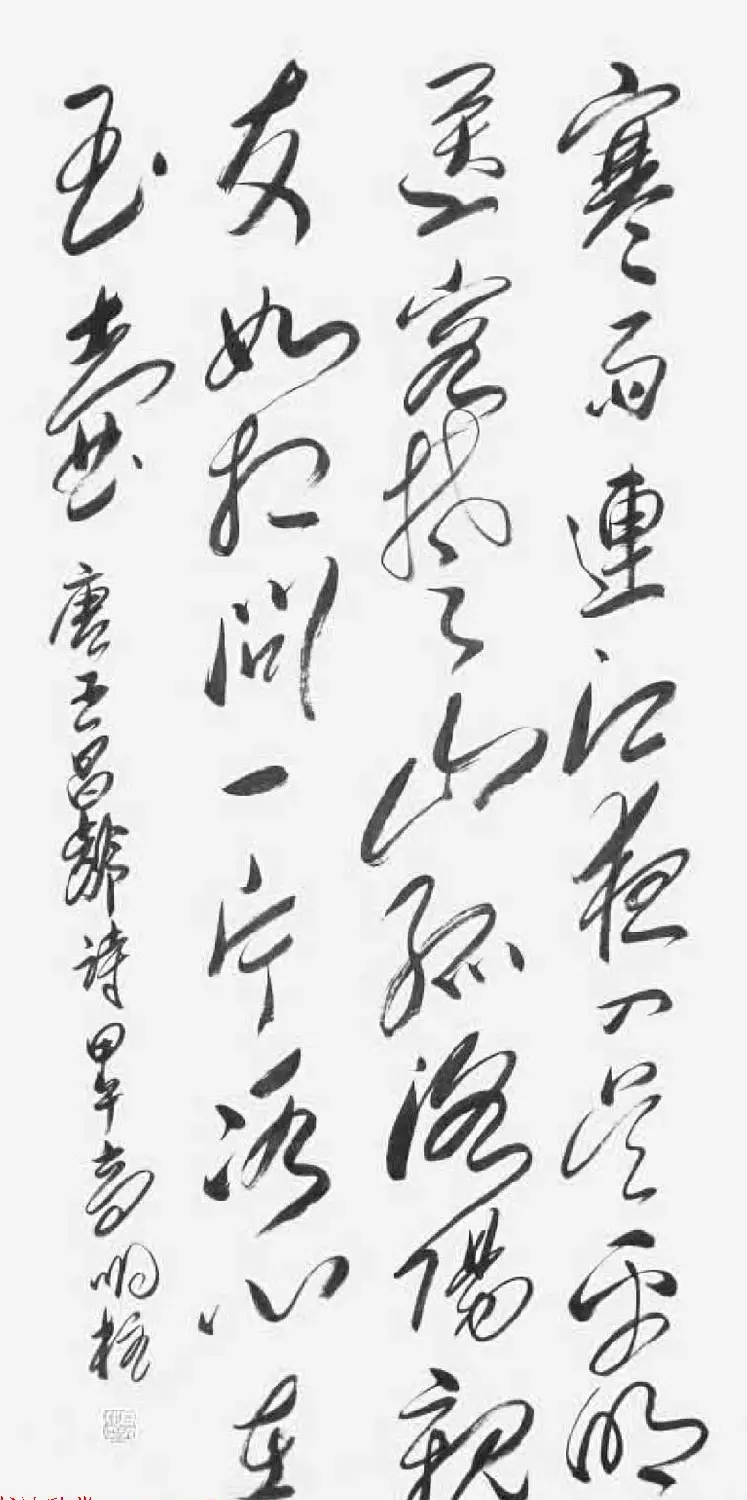 寒雨連江夜入吳平明
送客楚山孤洛陽親
友如相問一片冰心在
玉壺 唐王昌齡詩甲午高明柱